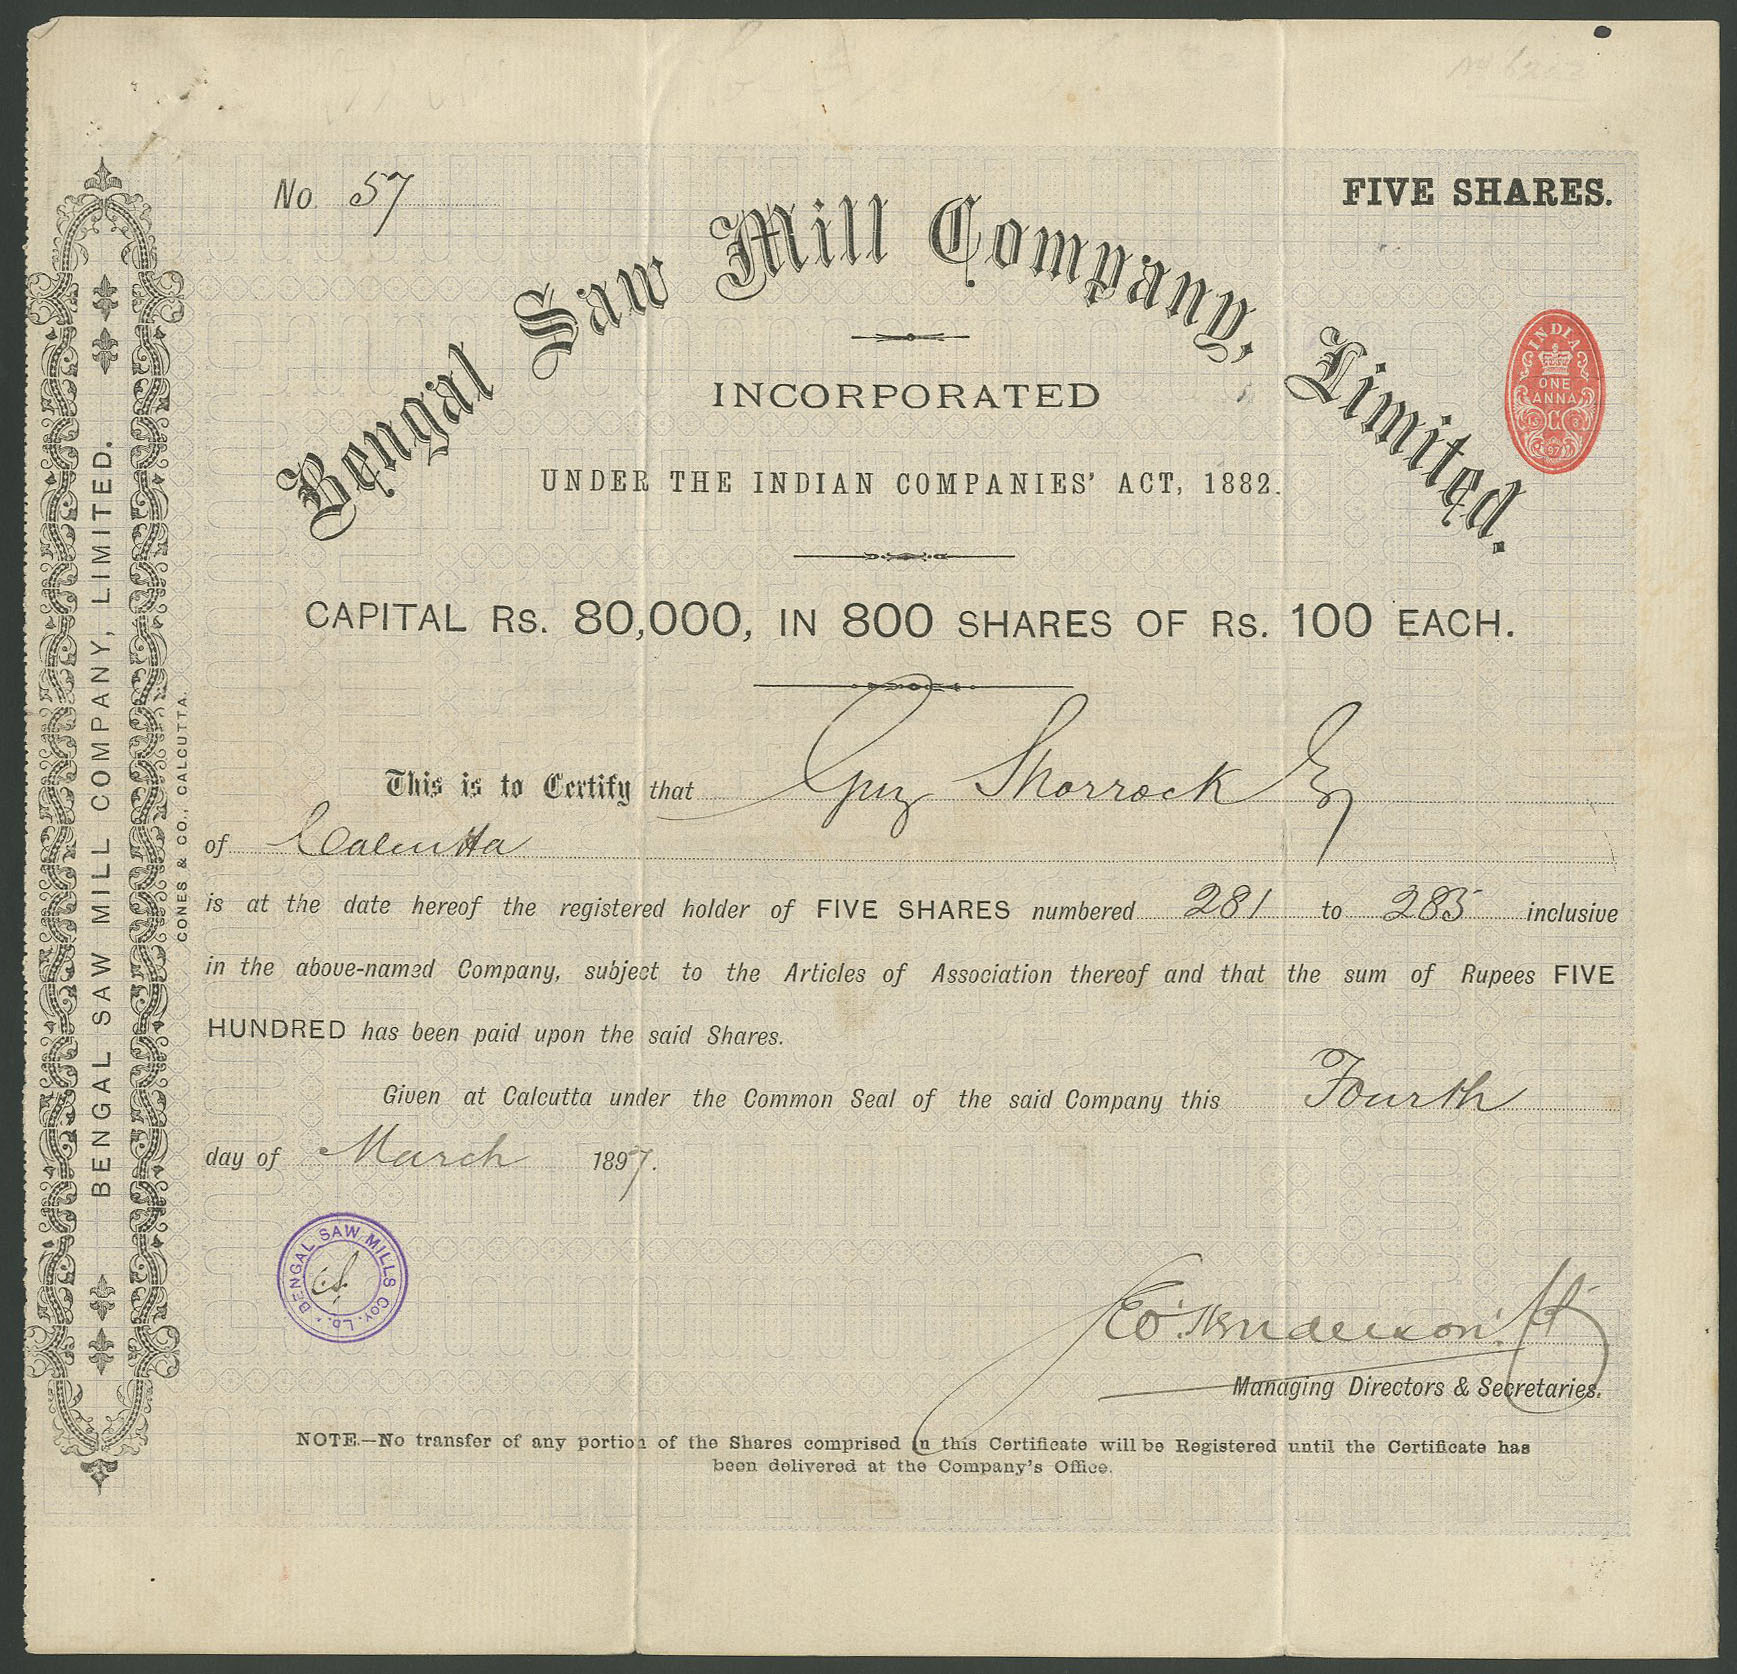 No. 57
FIVE SHARES.
Bengal Saw Mill Company, Limited.
INDIA
ONE
ANNA
C
97
INCORPORATED
UNDER THE INDIAN COMPANIES' ACT, 1882.
CAPITAL Rs. 80,000, IN 800 SHARES OF Rs. 100 EACH.
This is to Certify that Guy Shorrock Esq
of Calcutta
is at the date hereof the registered holder of FIVE SHARES numbered 281 to 285 inclusive
in the above-named Company, subject to the Articles of Association thereof and that the sum of Rupees FIVE
HUNDRED has been paid upon the said Shares.
Given at Calcutta under the Common Seal of the said Company this Fourth
day of March 1897.
BENGAL SAW MILLS COY. LD.
Managing Directors & Secretaries.
NOTE.—No transfer of any portion of the Shares comprised in this Certificate will be Registered until the Certificate has
been delivered at the Company's Office.
BENGAL SAW MILL COMPANY, LIMITED.
CONES & CO., CALCUTTA.